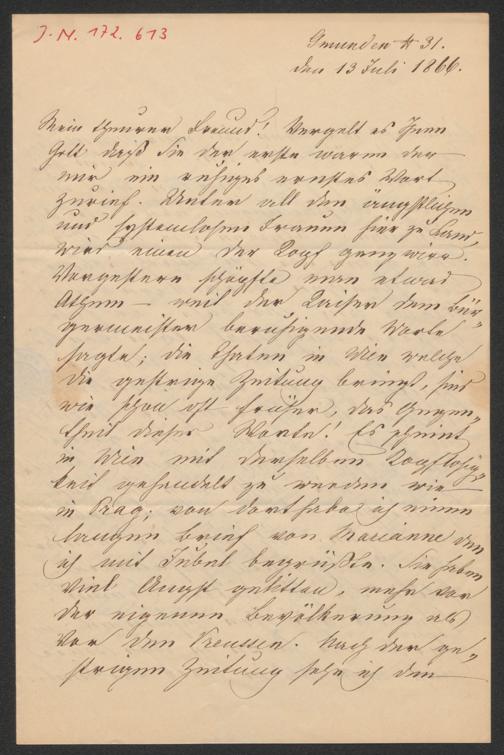 J. N. 172. 613
Gmunden # 31.
den 13 Juli 1866.
Mein theurer Freund! Vergelt es Ihnen
Gott daß Sie der erste waren der
mir ein ruhiges ernstes Wort
zurief. Unter all den ängstlichen
und systemlosen Frauen hier zu Land,
wird einem der Kopf ganz wirr.
Vorgestern schöpfte man etwas
Athem – weil der Kaiser dem Bür„
germeister beruhigende Worte
sagte; die Thaten in Wien welche
die gestrige Zeitung bringt, sind
wie schon oft früher, das Gegen„
theil dieser Worte! Es scheint
in Wien mit derselben Kopflosig„
keit gehandelt zu werden wie
in Prag; von dort habe ich einen
langen Brief von Marianne den
ich mit Jubel begrüßte. Sie haben
viel Angst gelitten, mehr vor
der eigenen Bevölkerung als
vor den Preussen. Nach der ge„
strigen Zeitung sehe ich den